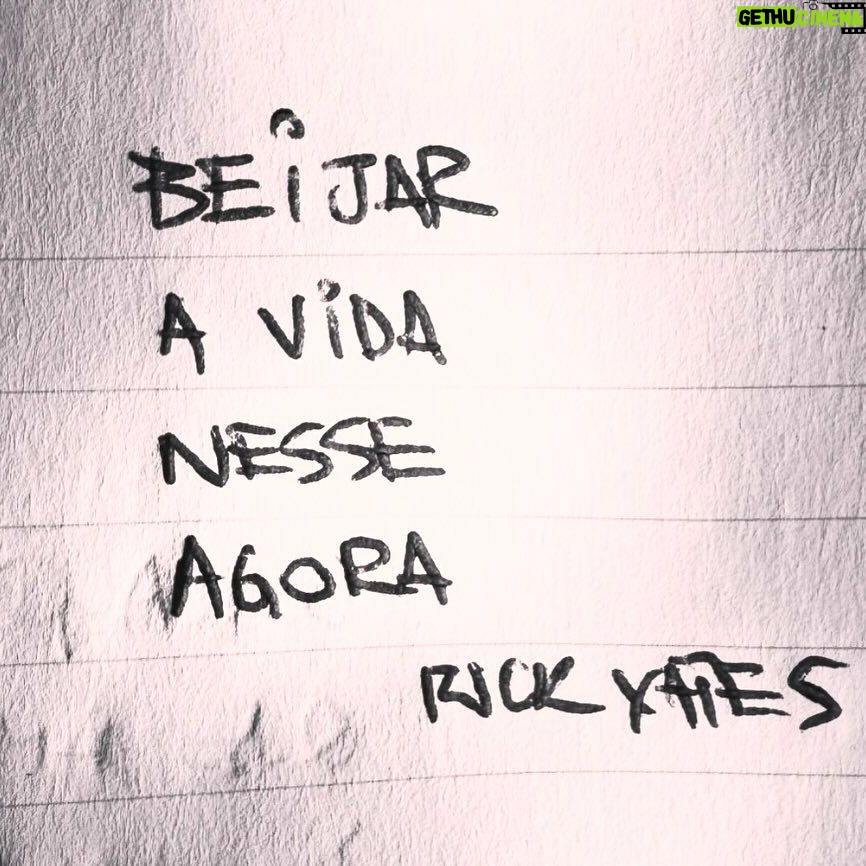 GETHUCINEMA
BEiJAR
A ViDA
NESSE
AGORA
RICK YATES